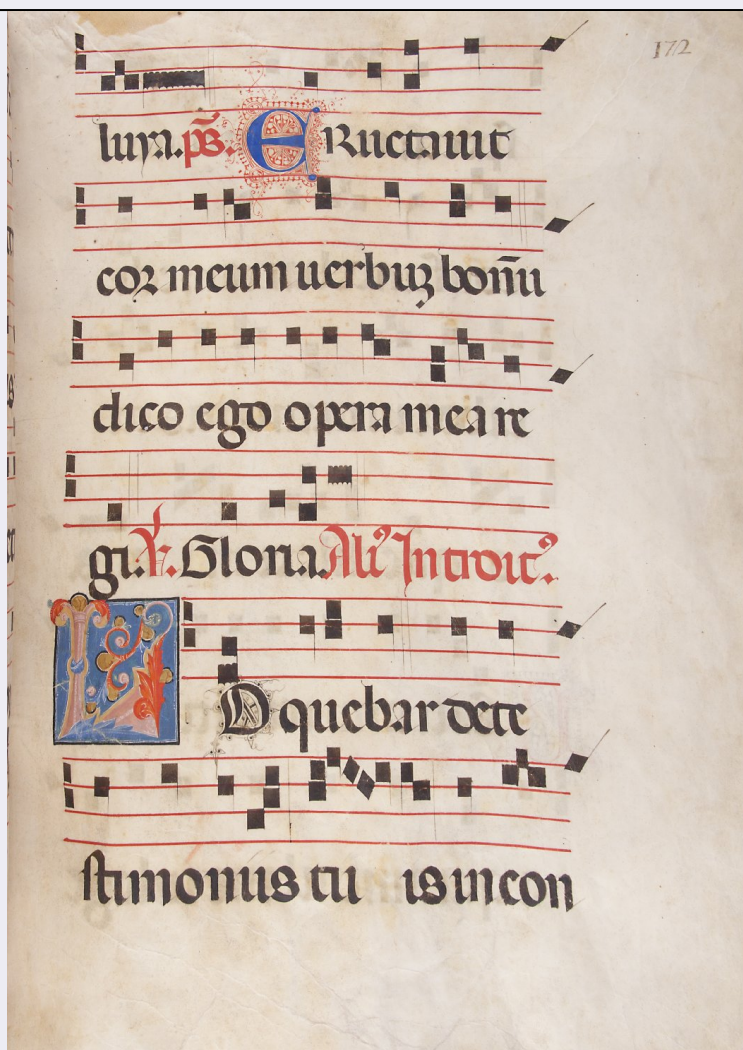 172
luya. ps. ERuctauit
cor meum uerbuz bonū
dico ego opera mea re
gi. V. Gloria. Ali9 Introit9.
LOquebar de te
stimoniis tu is in con